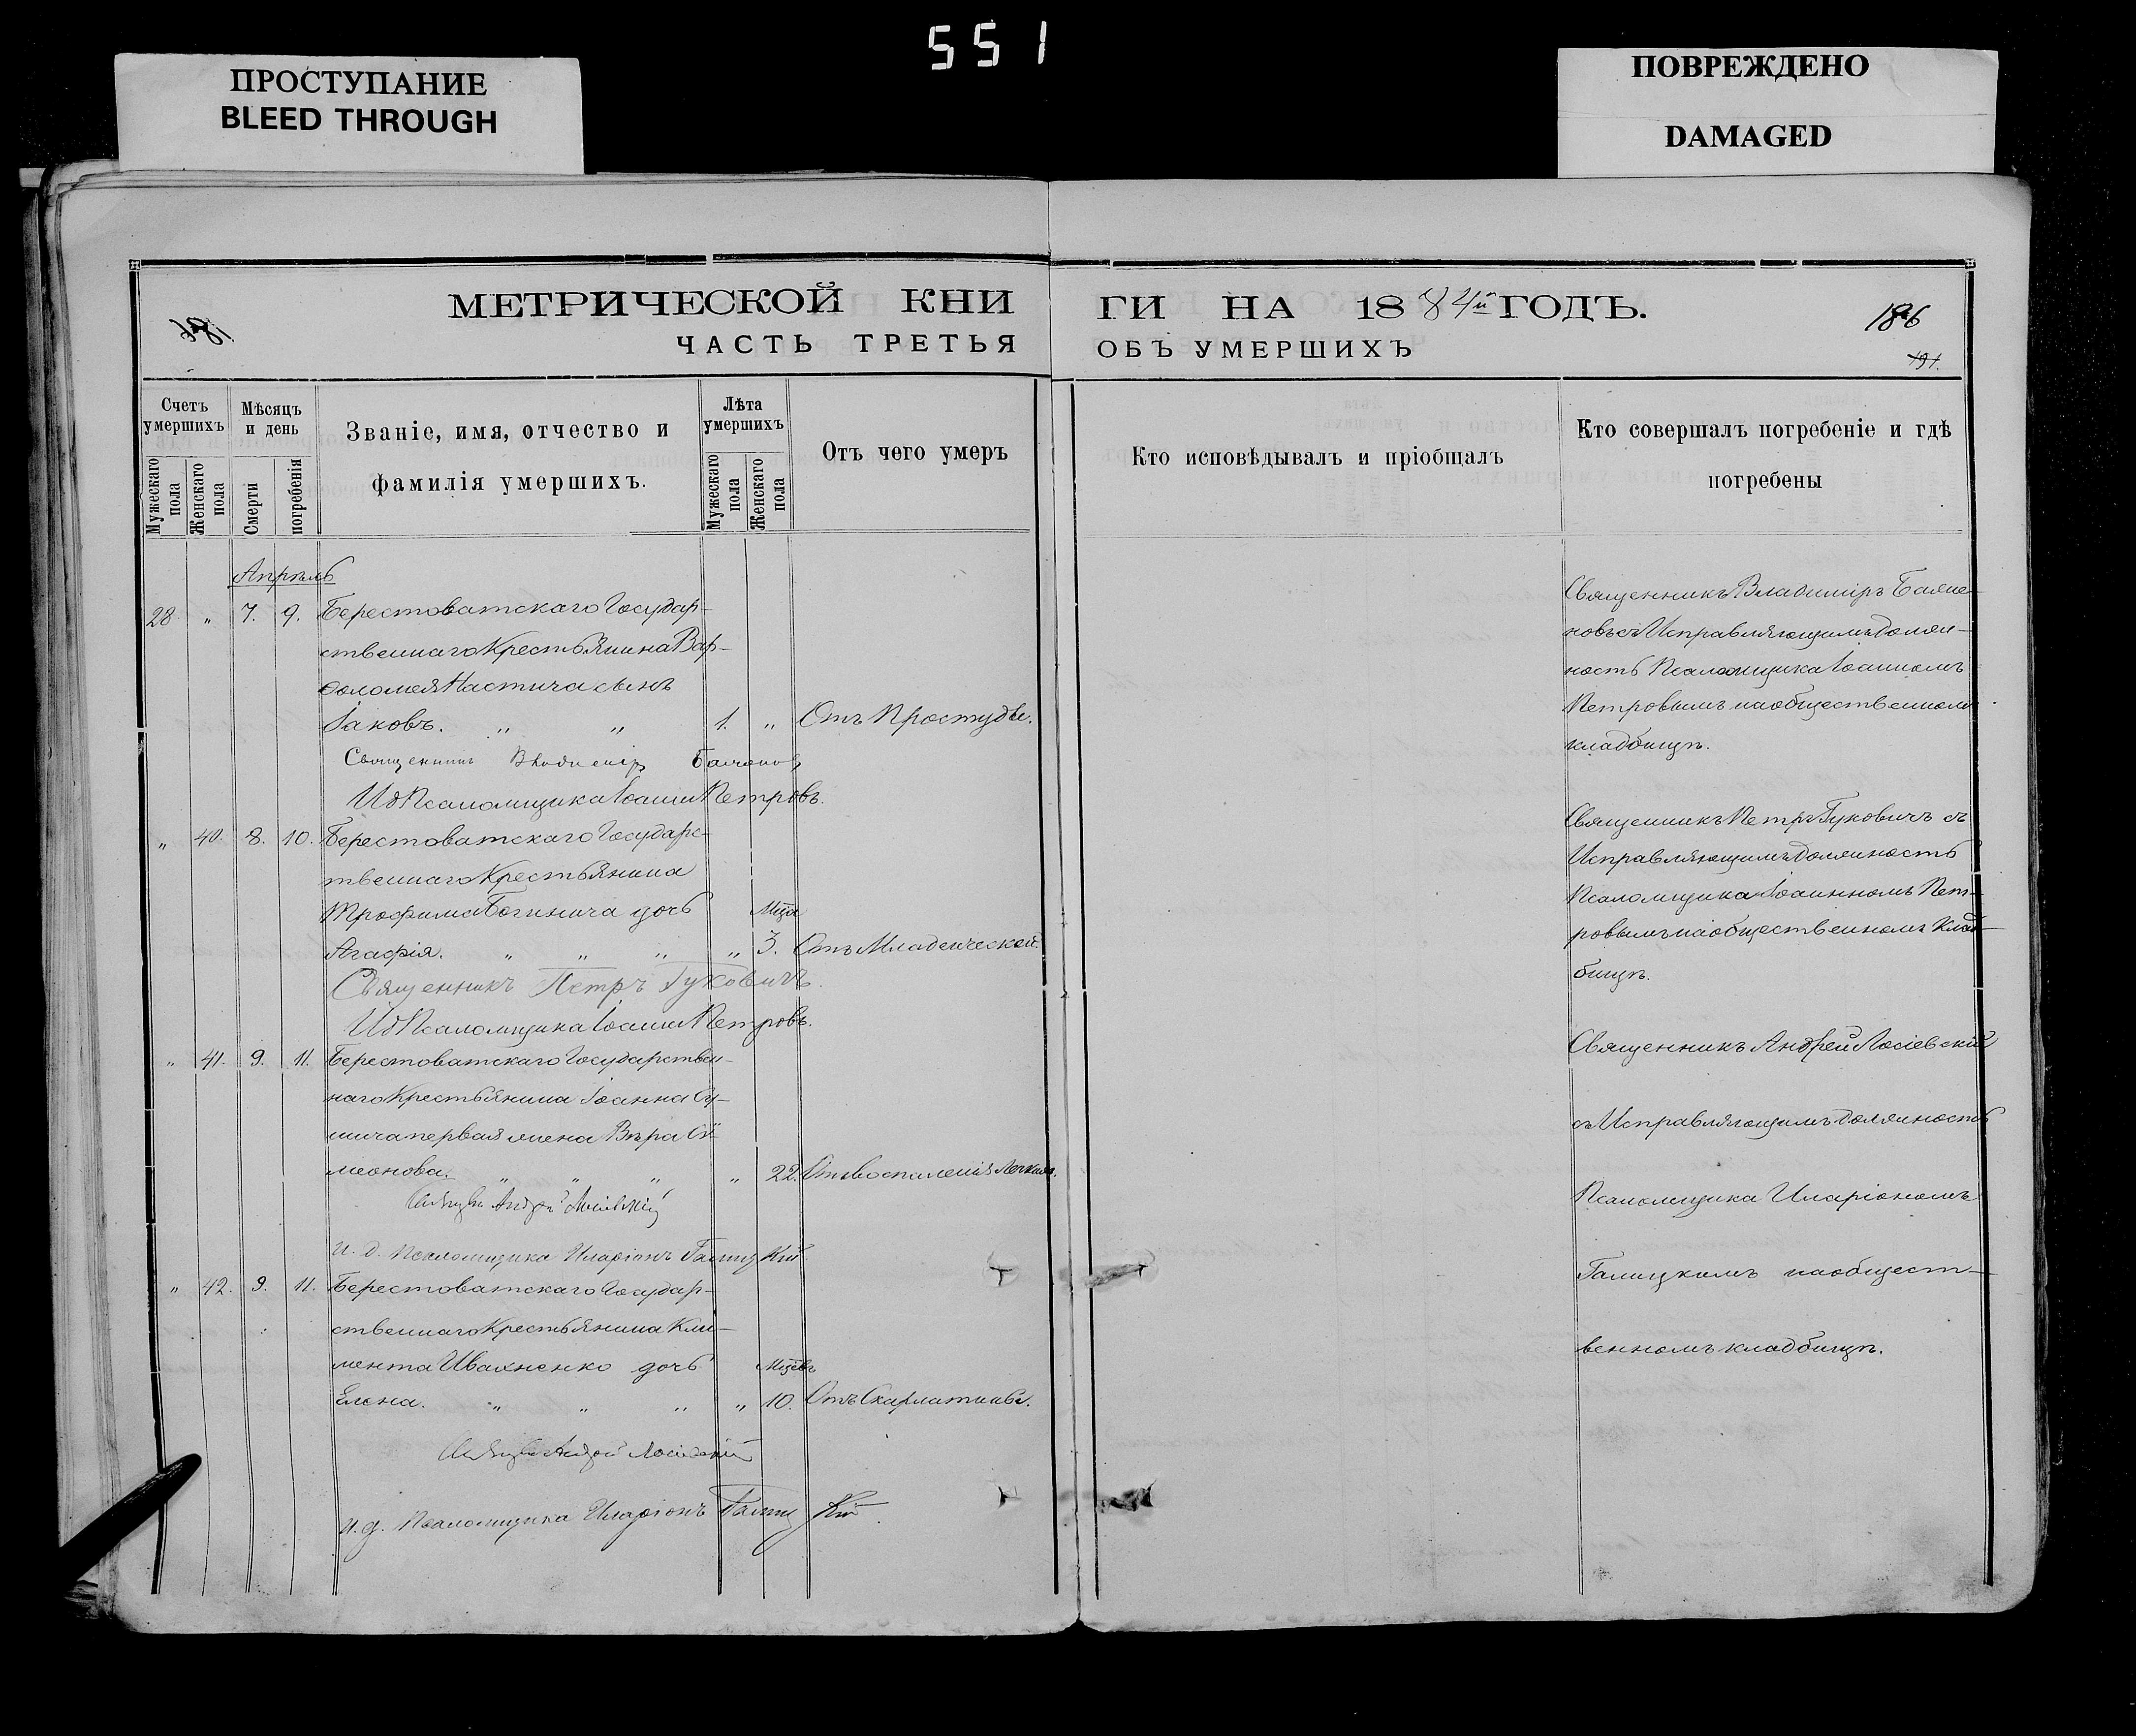 551
ПРОСТУПАНИЕ
BLEED THROUGH
ПОВРЕЖДЕНО
DAMAGED
МЕТРИЧЕСКОЙ КНИ
ГИ НА 1884й ГОДЪ.
186
191.
ЧАСТЬ ТРЕТЬЯ
ОБЪ УМЕРШИХЪ
Счетъ умершихъ
Мужескаго пола
Женскаго пола
Мѣсяцъ и день
Смерти
погребенія
Званіе, имя, отчество и
фамилія умершихъ.
Лѣта умершихъ
Мужескаго пола
Женскаго пола
Отъ чего умеръ
Кто исповѣдывалъ и пріобщалъ
Кто совершалъ погребеніе и гдѣ
погребены
Апрѣль
28 „ 7. 9. Берестоватскаго Государ-
ственнаго Крестьянина Вар-
ѳоломея сынъ
Іаковъ. „ „ 1. „ Отъ Простуды.
Священникъ Владиміръ
ИдПсаломщика Іоаннъ Петровъ.
Священникъ Владиміръ
новъ съ Исправляющимъ Долж-
ность Псаломщика Іоанномъ
Петровымъ на общественномъ
кладбищѣ.
„ 40. 8. 10. Берестоватскаго Государс-
твеннаго Крестьянина
Трофима Богинича дочь Мцa
Агафія. „ „ „ „ 3. Отъ Младенческой.
Священникъ Петръ Гуковичъ.
ИдПсаломщика Іоаннъ Петровъ.
Священникъ Петръ Гуковичъ съ
Исправляющимъ Должность
Псаломщика Іоанномъ Пет-
ровымъ на общественномъ Клад-
бищѣ.
„ 41. 9. 11. Берестоватскаго Государствен-
наго Крестьянина Іоанна Су-
первая жена Вѣра Си-
меонова. „ „ „ „ 22. Отъ воспаленія Легкихъ.
Андрей Лосіевскій
и. д. Псаломщика Иларіонъ Галицкій
Священникъ Андрей Лосіевскій
съ Исправляющимъ Должность
Псаломщика Иларіономъ
Галицкимъ на общест-
венномъ кладбищѣ.
„ 42. 9. 11. Берестоватскаго Государ-
ственнаго Крестьянина Кли-
мента Ивахненко дочь Мцевъ
Елена. „ „ „ „ 10. Отъ Скарлатины.
Андрей Лосіевскій
и. д. Псаломщика Иларіонъ Галицкій